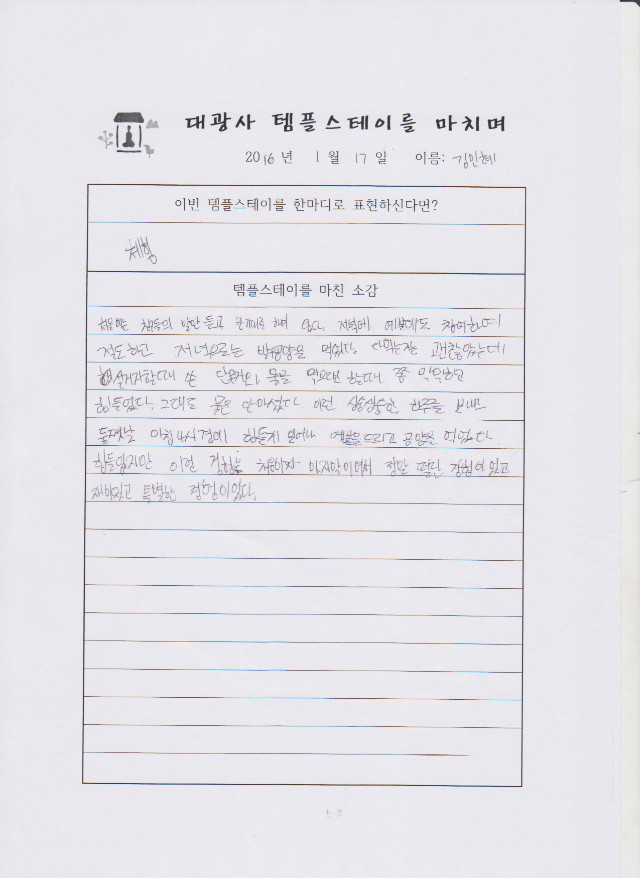 대광사 템플스테이를 마치며
2016년 1월 17일 이름: 김민혜
이번 템플스테이를 한마디로 표현하신다면?
체험
템플스테이를 마친 소감
처음에는 스님들의 말만 듣고 하며 있다. 저녁에 예불에도 참여한뒤
절도하고 저녁으로는 발우공양을 먹었다. 다먹는것은 괜찮았는데
설거지할때 쓴 단무지와 물을 먹으려 할때 좀
힘들었다. 그래도 물은 안마셨다 이런 하루를 보내고
둘쨋날 아침 4시경에 힘들게 일어나 예불을 드리고 공양을 먹었다.
힘들었지만 이런 경험은 처음이자 마지막이여서 정말 경험이었고
재미있고 특별한 경험이었다.